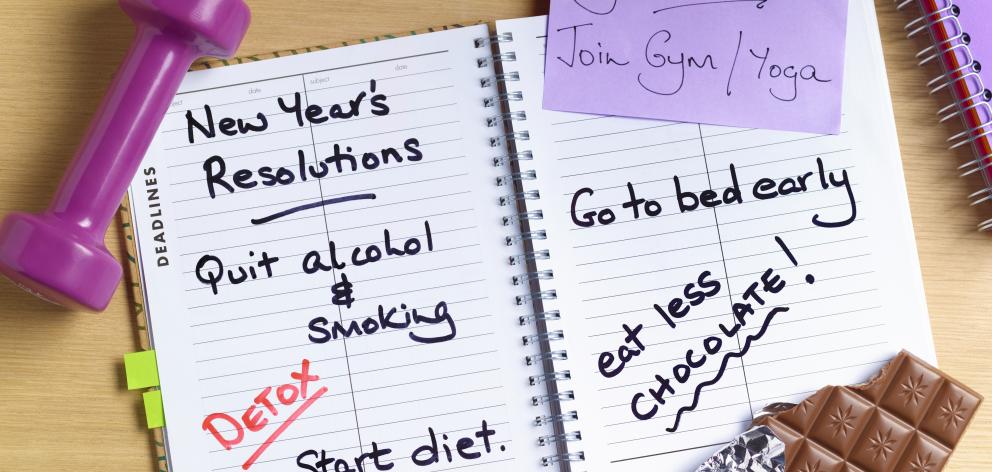 subject
date
subject
date
DEADLINES
New Year's
Resolutions
Quit alcohol
&
Smoking
DETOX
Start diet.
Join Gym / Yoga
Go to bed early
eat less
CHOCOLATE!